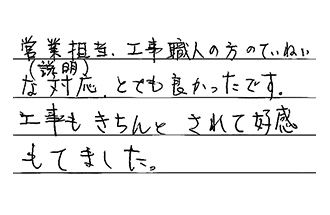 営業担当、工事職人の方のていねい
(説明)
な対応、とても良かったです。
工事もきちんと されて好感
もてました。